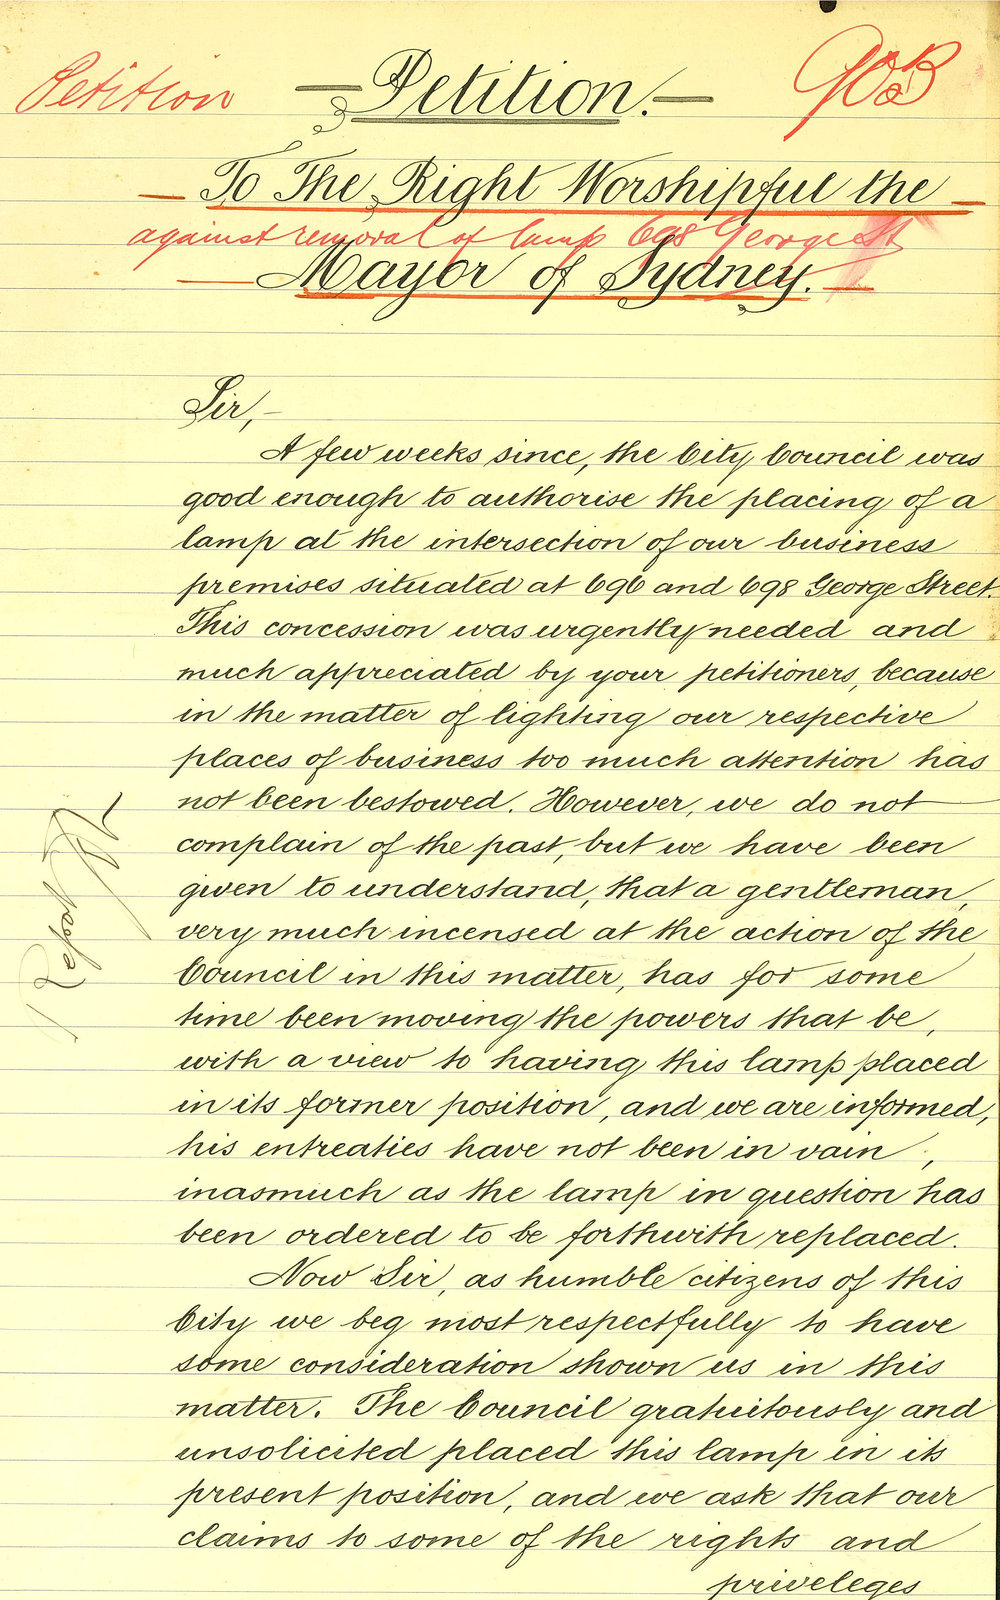 Petition — Petition. —
— To The Right Worshipful the —
against removal of lamp 698 George St
— Mayor of Sydney. —
Sir,—
A few weeks since, the City Council was
good enough to authorise the placing of a
lamp at the intersection of our business
premises situated at 696 and 698 George Street.
This concession was urgently needed and
much appreciated by your petitioners, because
in the matter of lighting our respective
places of business too much attention has
not been bestowed. However, we do not
complain of the past, but we have been
given to understand, that a gentleman,
very much incensed at the action of the
Council in this matter, has for some
time been moving the powers that be,
with a view to having this lamp placed
in its former position, and we are informed,
his entreaties have not been in vain,
inasmuch as the lamp in question has
been ordered to be forthwith replaced.
Now Sir, as humble citizens of this
City we beg most respectfully to have
some consideration shown us in this
matter. The Council gratuitously and
unsolicited placed this lamp in its
present position, and we ask that our
claims to some of the rights and
priveleges
Report